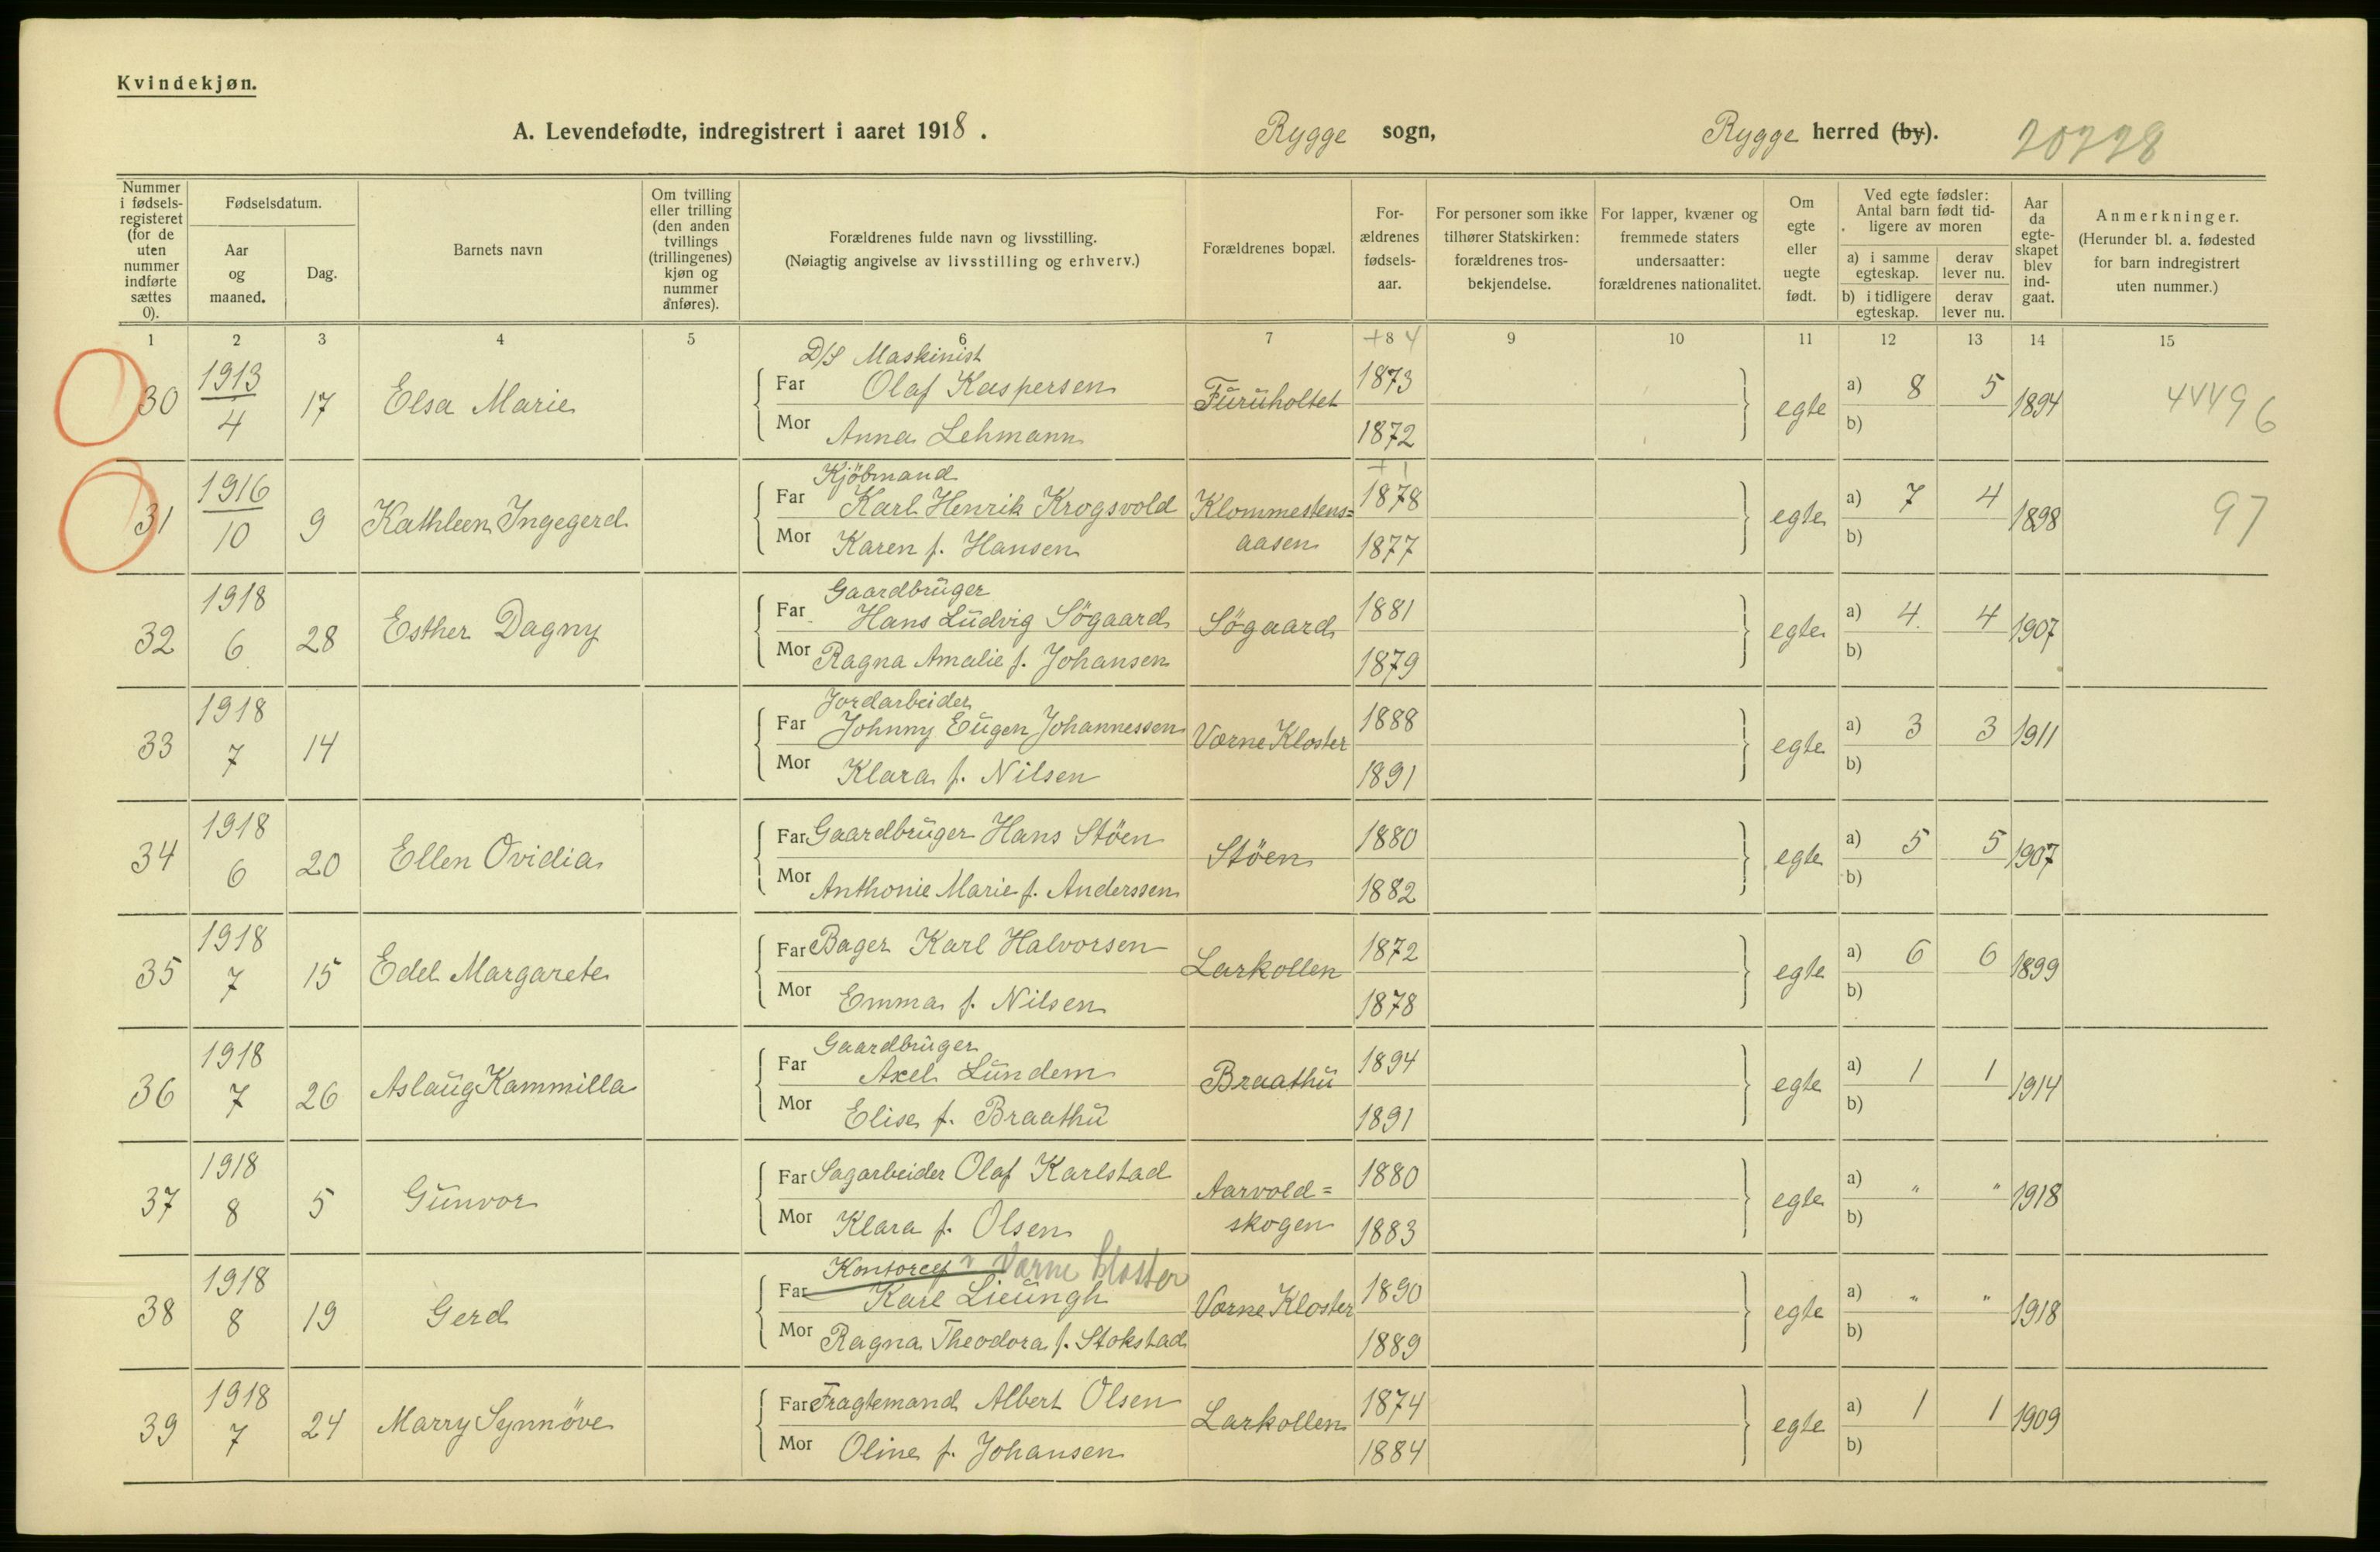 Kvindekjøn.
A. Levendefødte, indregistrert i aaret 1918. Rygge sogn, Rygge herred (by). 20728
Nummer i fødsels-registeret (for de uten nummer indførte sættes 0).
Fødselsdatum.
Aar og maaned.
Dag.
Barnets navn
Om tvilling eller trilling (den anden tvillings (trillingenes) kjøn og nummer anføres).
Forældrenes fulde navn og livsstilling.
(Nøiagtig angivelse av livsstilling og erhverv.)
Forældrenes bopæl.
For-ældrenes fødsels-aar.
For personer som ikke tilhører Statskirken: forældrenes tros-bekjendelse.
For lapper, kvæner og fremmede staters undersaatter: forældrenes nationalitet.
Om egte eller uegte født.
Ved egte fødsler: Antal barn født tid-ligere av moren
a) i samme egteskap.
derav lever nu.
b) i tidligere egteskap.
derav lever nu.
Aar da egte-skapet blev ind-gaat.
Anmerkninger.
(Herunder bl. a. fødested for barn indregistrert uten nummer.)
1 2 3 4 5 6 7 +84 9 10 11 12 13 14 15
D/S Maskinist
30 1913 4 17 Elsa Marie Far Olaf Kaspersen Furuholtet 1873 egte a) 8 5 1894 44496
Mor Anna Lehmann 1872 b)
Kjöbmand + 1
31 1916 10 9 Kathleen Ingegerd Far Karl Henrik Krogsvold Klommestens= 1878 egte a) 7 4 1898 97
Mor Karen f. Hansen aasen 1877 b)
Gaardbruger
32 1918 6 28 Esther Dagny Far Hans Ludvig Sögaard Sögaard 1881 egte a) 4 4 1907
Mor Ragna Amalie f. Johansen 1879 b)
Jordarbeider
33 1918 7 14 Far Johnny Eugen Johannessen Værne Kloster 1888 egte a) 3 3 1911
Mor Klara f. Nilsen 1891 b)
34 1918 6 20 Ellen Ovidia Far Gaardbruger Hans Stöen Stöen 1880 egte a) 5 5 1907
Mor Anthonie Marie f. Anderssen 1882 b)
35 1918 7 15 Edel Margarete Far Bager Karl Halvorsen Larkollen 1872 egte a) 6 6 1899
Mor Emma f. Nilsen 1878 b)
Gaardbruger
36 1918 7 26 Aslaug Kammilla Far Axel Lundem Braathu 1894 egte a) 1 1 1914
Mor Elise f. Braathu 1891 b)
37 1918 8 5 Gunvor Far Sagarbeider Olaf Karlstad Aarvold= 1880 egte a) " " 1918
Mor Klara f. Olsen skogen 1883 b)
Værne kloster
38 1918 8 19 Gerd Far Karl Lieungh Værne Kloster 1890 egte a) " " 1918
Mor Ragna Theodora f. Stokstad 1889 b)
39 1918 7 24 Marry Synnöve Far Fragtemand Albert Olsen Larkollen 1874 egte a) 1 1 1909
Mor Oline f. Johansen 1884 b)